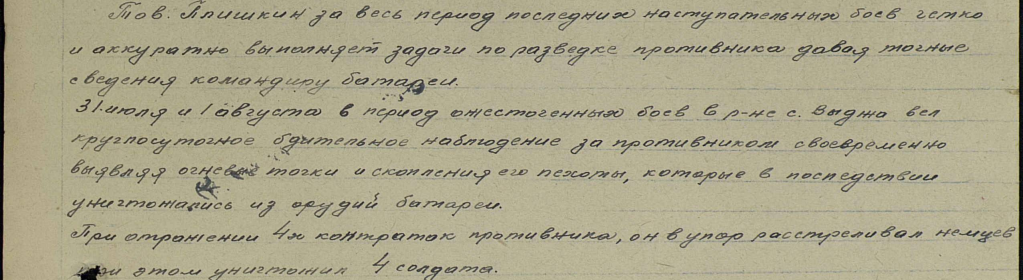 Тов. Плишкин за весь период последних наступательных боев четко
и аккуратно выполняет задачи по разведке противника давая точные
сведения командиру батареи.
31 июля и 1 августа в период ожесточенных боев в р-не с. Выджа вел
круглосуточное бдительное наблюдение за противником своевременно
выявляя огневые точки и скопления его пехоты, которые в последствии
уничтожались из орудий батареи.
При отражении 4х контратак противника, он в упор расстреливал немцев
при этом уничтожил 4 солдата.